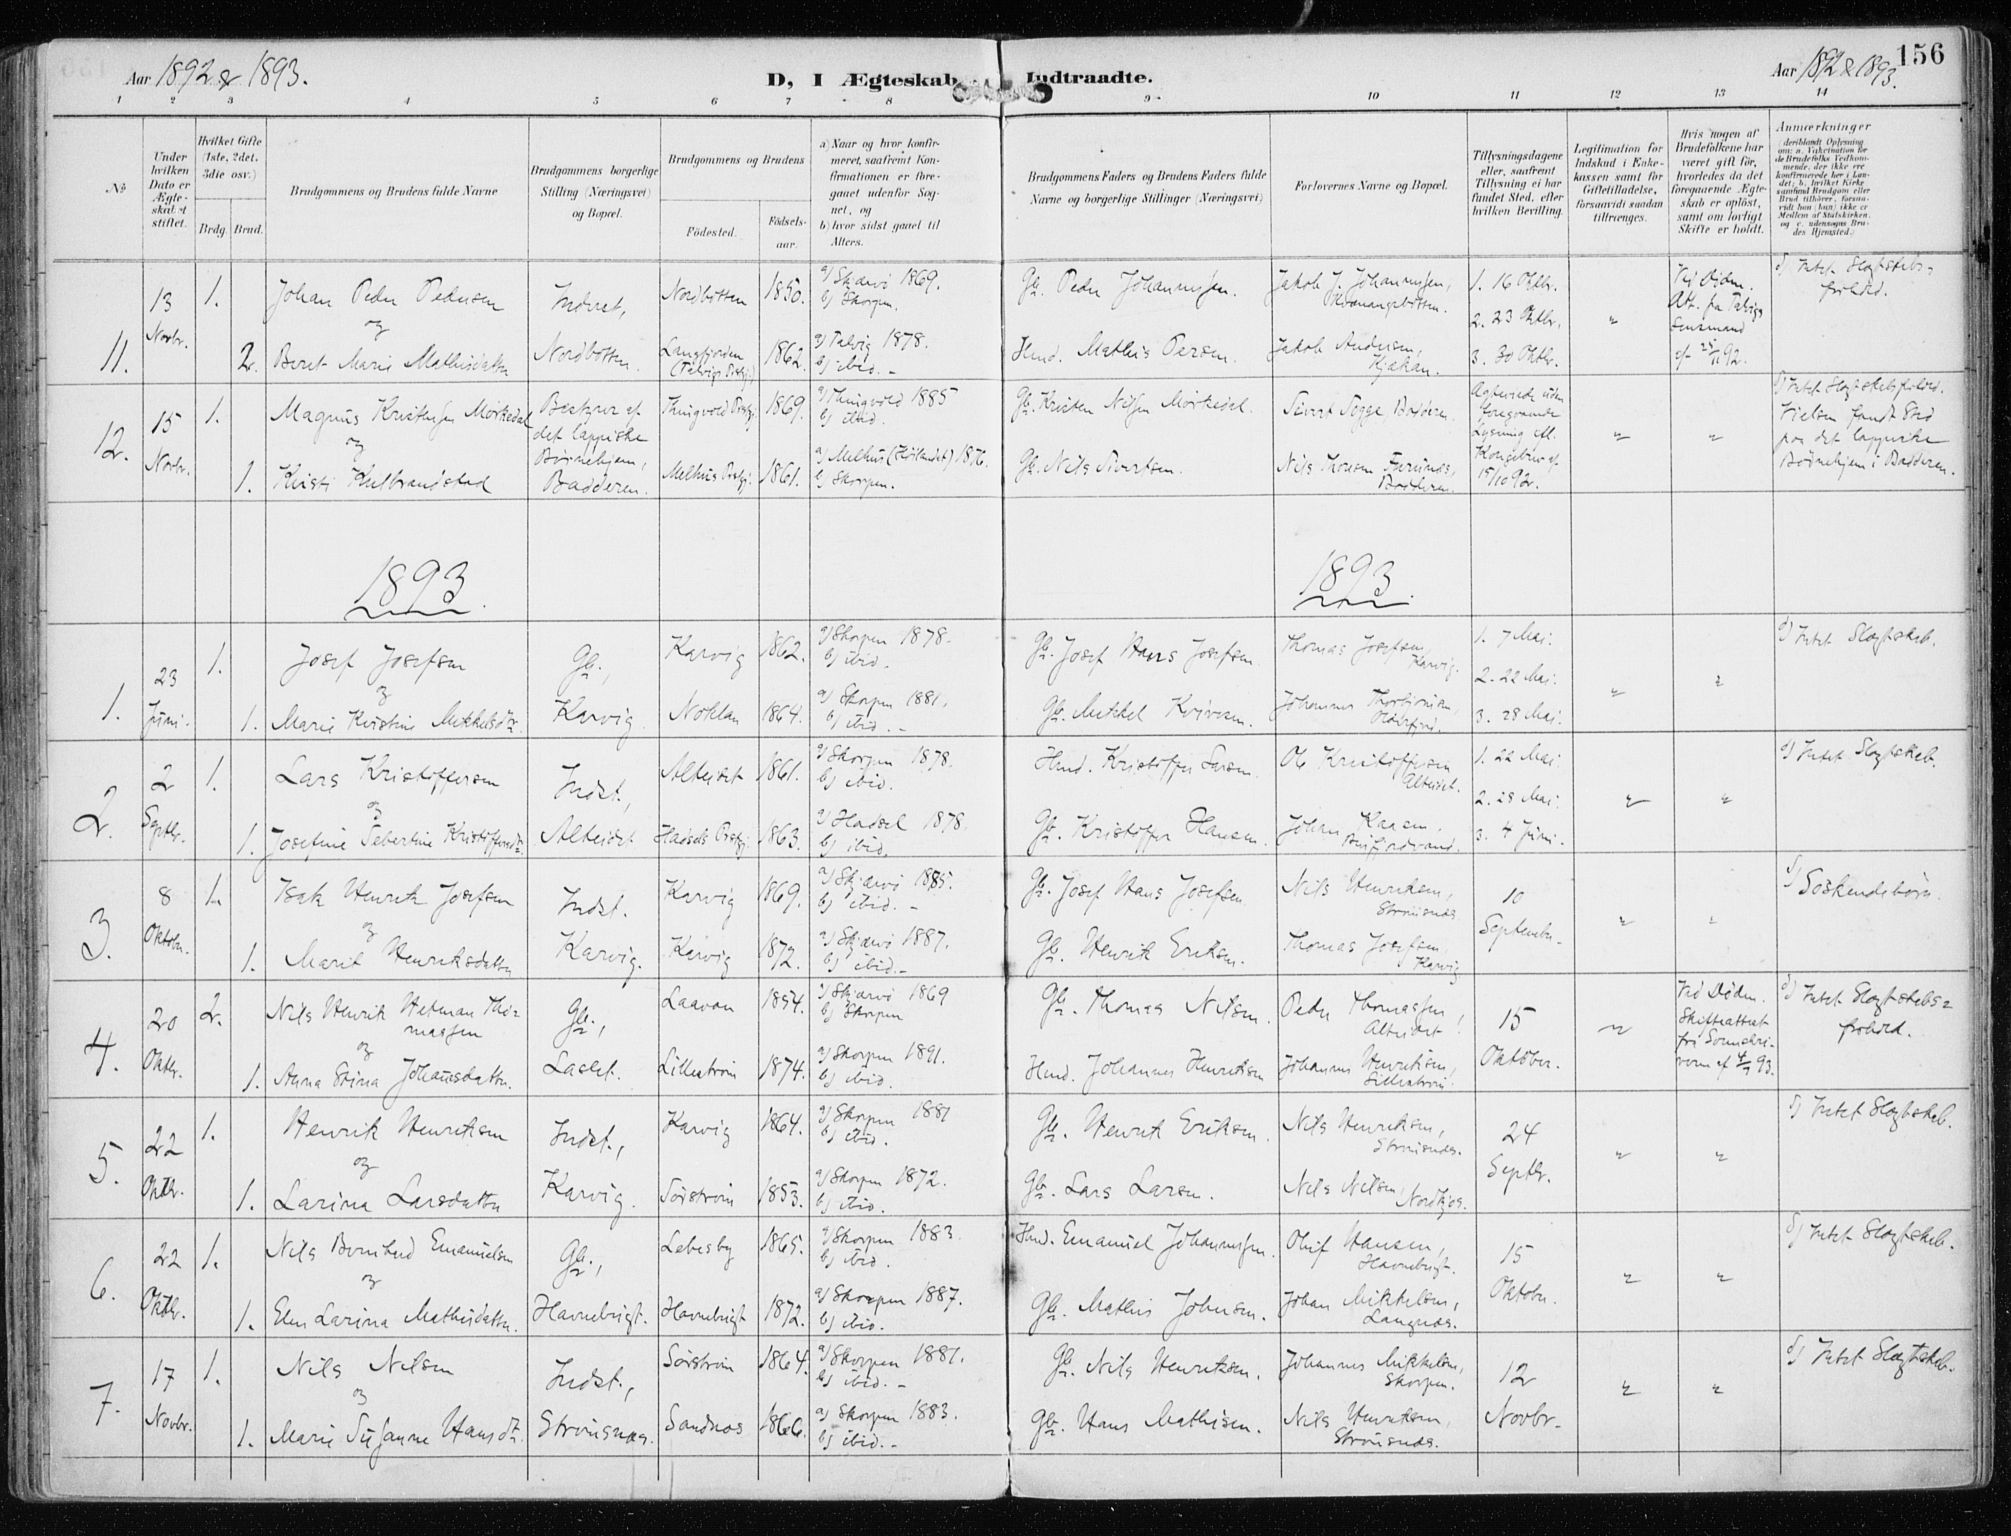 Aar 1892 & 1893.
D, I Ægteskab Indtraadte.
Aar 1892 & 1893.
156
1 2 3 4 5 6 7 8 9 10 11 12 13 14
No
Under hvilken Dato er Ægteskabet stiftet.
Hvilket Gifte (1ste, 2det, 3die osv.)
Brdg. Brud.
Brudgommens og Brudens fulde Navne
Brudgommens borgerlige Stilling (Næringsvei) og Bopæl.
Brudgommens og Brudens
Fødested.
Fødsels-aar.
a) Naar og hvor konfirmeret, saafremt Konfirmationen er foregaaet udenfor Sognet, og
b) hvor sidst gaaet til Alters.
Brudgommens Faders og Brudens Faders fulde Navne og borgerlige Stillinger (Næringsvei)
Forlovernes Navne og Bopæl.
Tillysningsdagene eller, saafremt Tillysning ei har fundet Sted, efter hvilken Bevilling.
Legitimation for Indskud i Enkekassen samt for Giftetilladelse, forsaavidt saadan tiltrænges.
Hvis nogen af Brudefolkene har været gift før, hvorledes da det foregaaende Ægteskab er opløst, samt om lovligt Skifte er holdt.
Anmærkninger
11. 13 Novbr. 1. Johan Peder Pedersen Indret, Nordbotten 1850. a) Skjærvø 1869. b) Skorpen. Gb. Peder Johannesen. Jakob J. Johannesen, Kvænangsbotten. 1. 16 Oktbr. 2. 23 Oktbr. 3. 30 Oktbr. " d) Intet Slægtskabsforhold.
og
2. Beret Marie Mathisdatter Nordbotten. Langfjorden (Talvigs Prstgj.) 1862. a) Talvig 1878. b) ibid. Mathis Persen. Jakob Andersen, Kjækan.
12. 15 Novbr. 1. Magnus Kristensen Mørkedal Bestyrer af det lappiske Børnehjem, Badderen. Thingvold Prstgj. 1869. a) Thingvold 1885 b) ibid. Gb. Kristen Nilsen Mørkedal. Sivert Togge, Badderen. Ægteviede uden foregaaende Lysning Kongebrev af 15/10 92. " " Intet Slægtskabsforhold. Vielsen fandt Sted paa det lappiske Børnehjem i Badderen.
og
1. Kirsti Kulbrandstad Melhus Prstgj. 1861. a) Melhus (Hølandet) 1876. b) Skorpen. Gb. Nils Sivertsen. Nils Thomsen Furunes, Badderen.
1893 1893
1. 23 Juni. 1. Josef Josefsen Gb., Karvig. Karvig 1862. a) Skorpen 1878. b) ibid. Gb. Josef Hans Josefsen. Thomas Josefsen, Karvig. 1. 7 Mai. 2. 22 Mai. 3. 28 Mai. " " d) Intet Slægtskab.
og
1. Marie Kristine Mikkelsdtr. Noklan 1864. a) Skorpen 1881. b) ibid. Gb. Mikkel Kvivesen. Johannes Thorbjørnsen, Olderfjord.
2. 2 Septbr. 1. Lars Kristoffersen Indst., Alteidet. Alteidet 1861. a) Skorpen 1878. b) ibid. Kristoffer Larsen. Ole Kristoffersen Alteidet. 1. 22 Mai 2. 28 Mai. 3. 4 Juni. " " d) Intet Slægtskab.
og
1. Josefine Sebertine Kristoffersdtr. Hadsels Prstgj. 1863. a) Hadsel 1878. b) ibid. Gb. Kristoffer Hansen. Johan Kaasen, Burfjordvand.
3. 8 Oktobr. 1. Isak Henrik Josefsen Indst. Karvig. Karvig 1869. a) Skjærvø 1885. b) ibid. Gb. Josef Hans Josefsen. Nils Henriksen, Strømsnæs. 10 September. " " d) Søskendebørn.
og
1. Marit Henriksdatter Karvig 1872. a) Skjærvø 1887. b) ibid. Gb. Henrik Eriksen. Thomas Josefsen, Karvig.
4. 20 Oktbr. 2. Nils Henrik Hetman Thomassen Gb., Laslet. Laavan 1854. a) Skjærvø 1869 b) Skorpen Gb. Thomas Nilsen. Peder Thomassen, Alteidet. 15 Oktober. " Ved Døden. Skifteattest fra Sorenskriveren af 4/9 93. d) Intet Slægtskabsforhold.
og
1. Anna Stina Johannsdatter. Lillestrøm 1874. a) Skorpen 1891. b) ibid. Johannes Henriksen Johannes Henriksen, Lillestrøm.
5. 22 Oktbr. 1. Henrik Henriksen Indst., Karvig. Karvig 1864. a) Skorpen 1881 b) ibid. Gb. Henrik Eriksen. Nils Henriksen, Strømsnæs. 24 Septbr. " " d) Intet Slægtskab.
og
1. Larina Larsdatter Sørstrøm 1853. a) Skorpen 1872. b) ibid. Gb. Lars Larsen. Nils Nilsen, Nordkjos.
6. 22 Oktbr. 1. Nils Bernhard Emanuelsen Gb., Havnebugt. Lebesby 1865. a) Skorpen 1883. b) ibid. Emanuel Johannesen. Oluf Hansen, Havnebugt. 15 Oktobr. " " d) Intet Slægtskab.
og
1. Elen Larina Mathisdatter. Havnebugt 1872. a) Skorpen 1887. b) ibid. Gb. Mathis Johnsen. Johan Mikkelsen, Langnæs.
7. 17 Novbr. 1. Nils Nilsen Indst., Strømsnæs. Sørstrøm 1864. a) Skorpen 1881. b) ibid. Gb. Nils Henriksen. Johannes Mikkelsen, Skorpen. 12 Novbr. " " d) Intet Slægtskab.
og
1. Marie Susanne Hansdtr. Sandnæs 1866. a) Skorpen 1883. b) ibid. Gb. Hans Mathisen. Nils Henriksen, Strømsnæs.